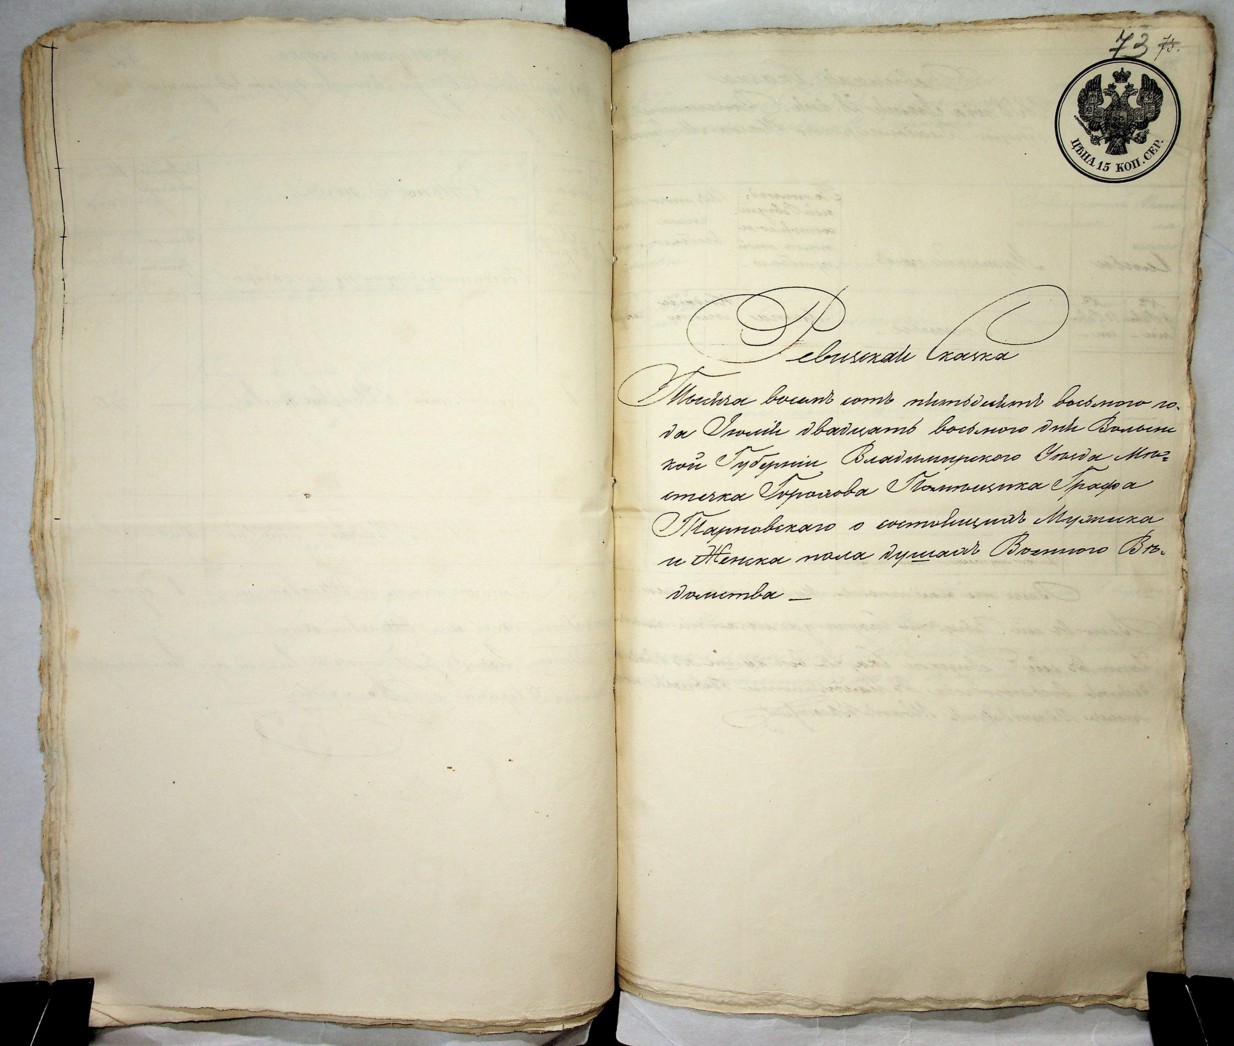 73 75.
ЦѢНА 15 КОП. СЕР.
Ревизская Сказка
Тысяча восемь сотъ пятьдесятъ восьмого го-
да Іюля двадцать восьмого дня Волынс
кой Губерніи Владимирского Уезда Мѣ-
стечка Горохова Помѣщика Графа
Тарновскаго о состоящихъ Мужеска
и Женска пола душахъ Военного Вѣ-
домства —